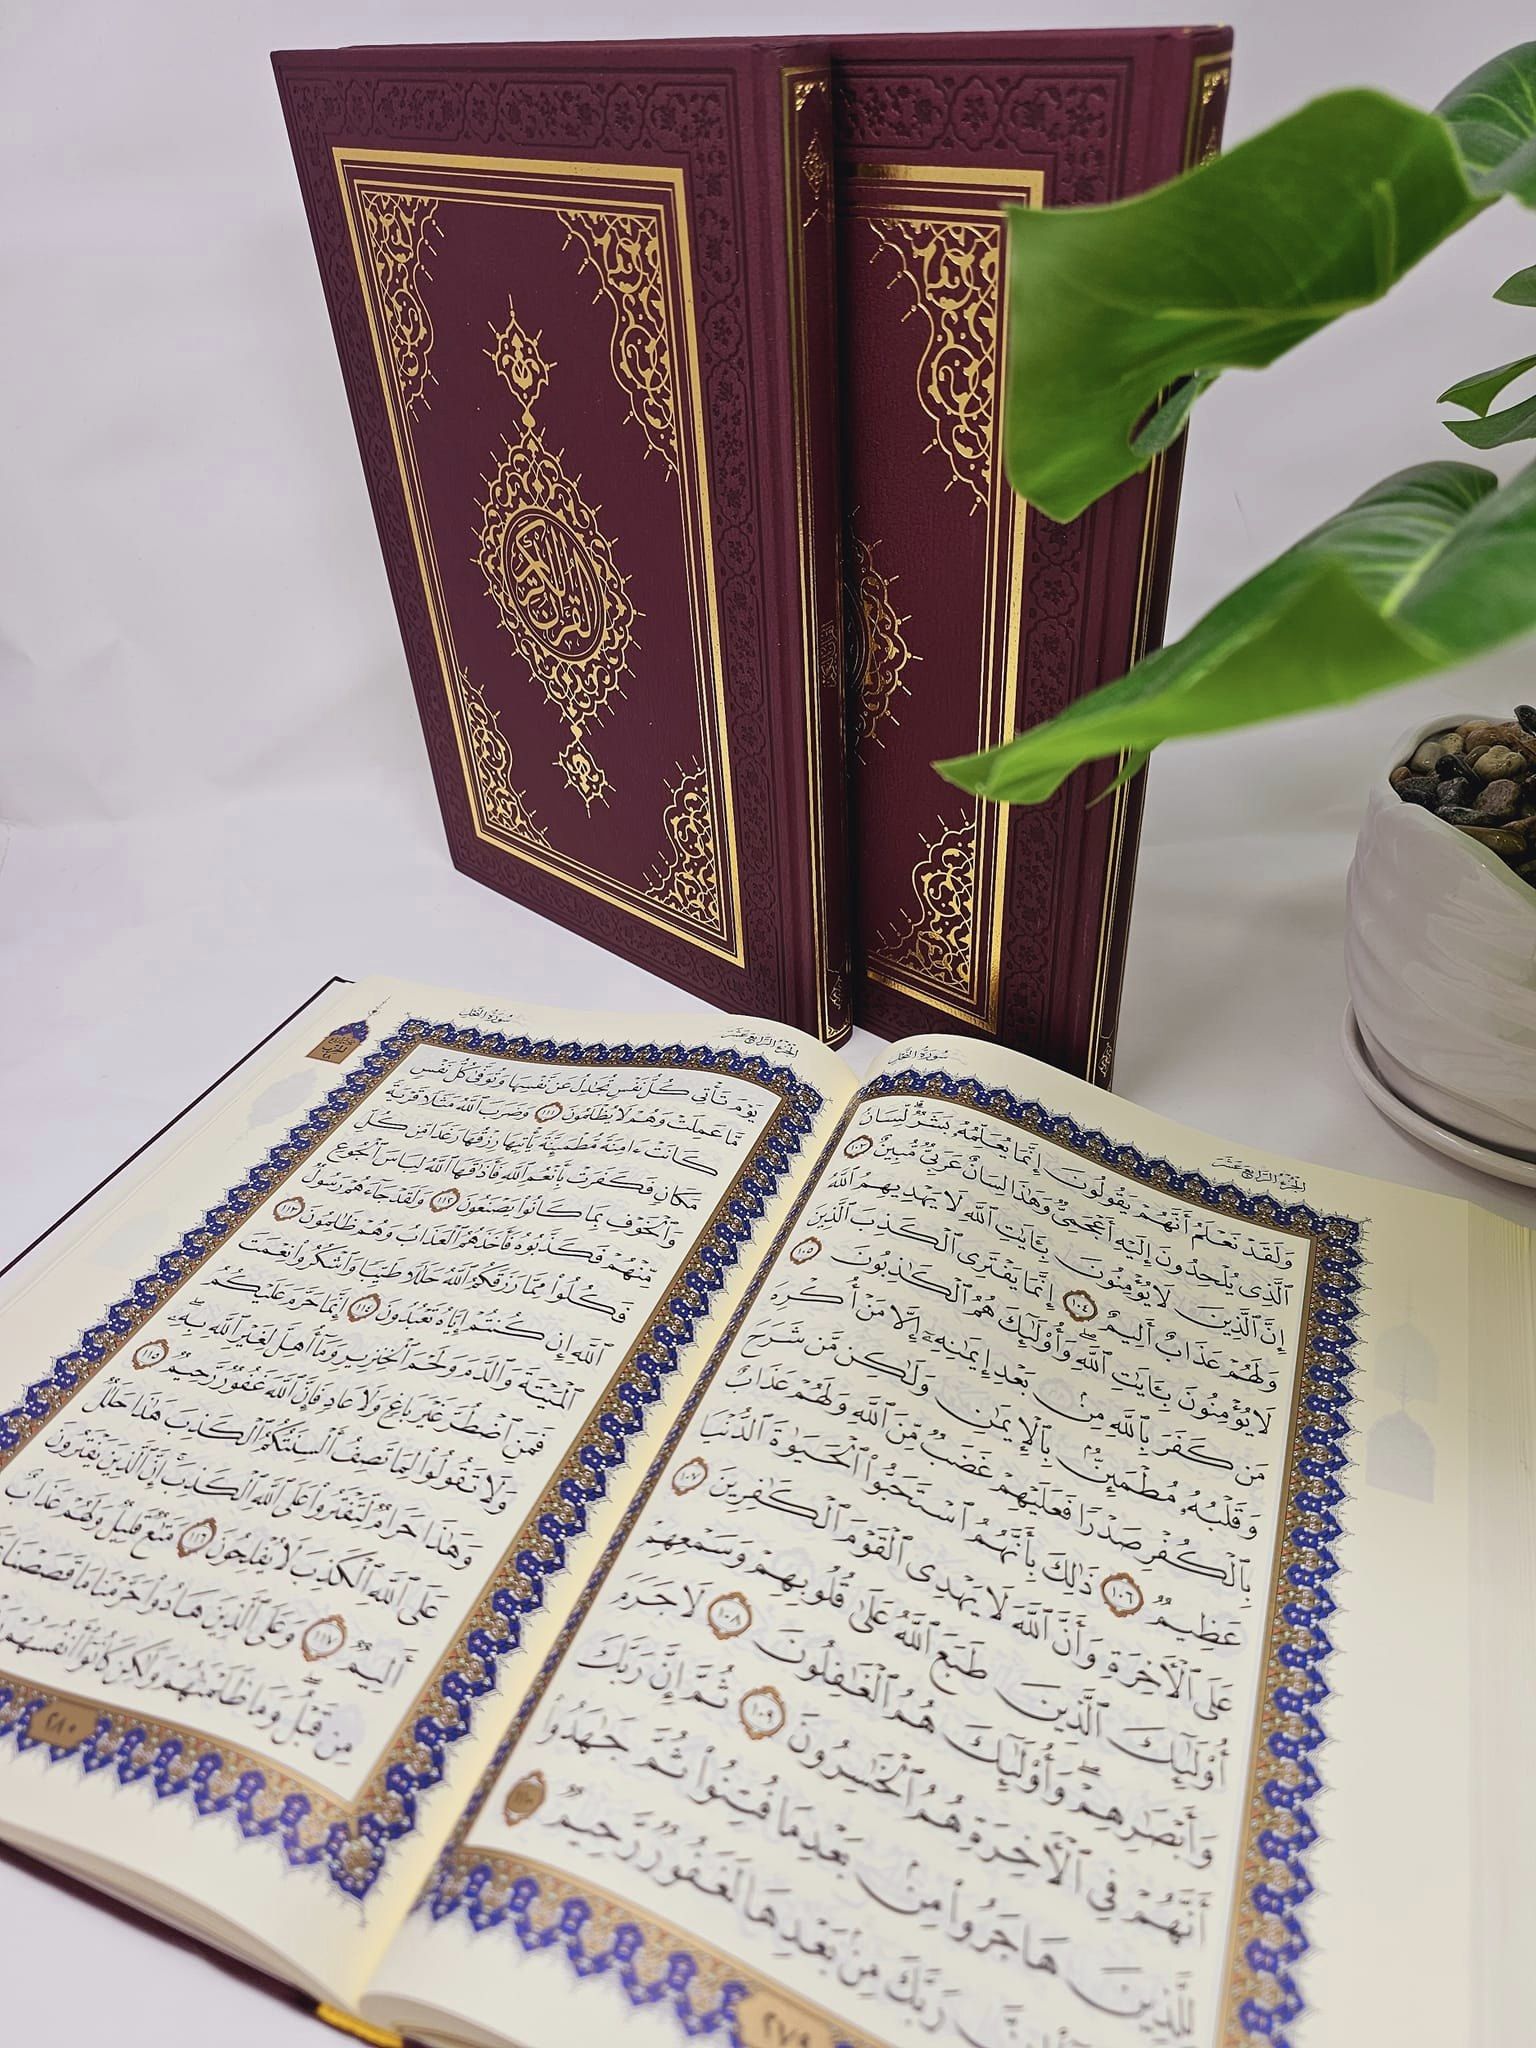 سُورَةُ النَّحْلِ
الجُزْءُ الرَّابِعَ عَشَرَ
وَلَقَدْ نَعْلَمُ أَنَّهُمْ يَقُولُونَ إِنَّمَا يُعَلِّمُهُۥ بَشَرٌ ۗ لِّسَانُ
ٱلَّذِى يُلْحِدُونَ إِلَيْهِ أَعْجَمِىٌّ وَهَٰذَا لِسَانٌ عَرَبِىٌّ مُّبِينٌ ١٠٣
إِنَّ ٱلَّذِينَ لَا يُؤْمِنُونَ بِـَٔايَٰتِ ٱللَّهِ لَا يَهْدِيهِمُ ٱللَّهُ
وَلَهُمْ عَذَابٌ أَلِيمٌ ١٠٤ إِنَّمَا يَفْتَرِى ٱلْكَذِبَ ٱلَّذِينَ
لَا يُؤْمِنُونَ بِـَٔايَٰتِ ٱللَّهِ ۖ وَأُو۟لَٰٓئِكَ هُمُ ٱلْكَٰذِبُونَ ١٠٥
مَن كَفَرَ بِٱللَّهِ مِنۢ بَعْدِ إِيمَٰنِهِۦٓ إِلَّا مَنْ أُكْرِهَ
وَقَلْبُهُۥ مُطْمَئِنٌّۢ بِٱلْإِيمَٰنِ وَلَٰكِن مَّن شَرَحَ
بِٱلْكُفْرِ صَدْرًا فَعَلَيْهِمْ غَضَبٌ مِّنَ ٱللَّهِ وَلَهُمْ عَذَابٌ
عَظِيمٌ ١٠٦ ذَٰلِكَ بِأَنَّهُمُ ٱسْتَحَبُّوا۟ ٱلْحَيَوٰةَ ٱلدُّنْيَا
عَلَى ٱلْـَٔاخِرَةِ وَأَنَّ ٱللَّهَ لَا يَهْدِى ٱلْقَوْمَ ٱلْكَٰفِرِينَ ١٠٧
أُو۟لَٰٓئِكَ ٱلَّذِينَ طَبَعَ ٱللَّهُ عَلَىٰ قُلُوبِهِمْ وَسَمْعِهِمْ
وَأَبْصَٰرِهِمْ ۖ وَأُو۟لَٰٓئِكَ هُمُ ٱلْغَٰفِلُونَ ١٠٨ لَا جَرَمَ
أَنَّهُمْ فِى ٱلْـَٔاخِرَةِ هُمُ ٱلْخَٰسِرُونَ ١٠٩ ثُمَّ إِنَّ رَبَّكَ
لِلَّذِينَ هَاجَرُوا۟ مِنۢ بَعْدِ مَا فُتِنُوا۟ ثُمَّ جَٰهَدُوا۟
رَبَّكَ مِنۢ بَعْدِهَا لَغَفُورٌ رَّحِيمٌ ١١٠
٢٧٩
سُورَةُ النَّحْلِ
الجُزْءُ الرَّابِعَ عَشَرَ
يَوْمَ تَأْتِى كُلُّ نَفْسٍ تُجَٰدِلُ عَن نَّفْسِهَا وَتُوَفَّىٰ كُلُّ نَفْسٍ
مَّا عَمِلَتْ وَهُمْ لَا يُظْلَمُونَ ١١١ وَضَرَبَ ٱللَّهُ مَثَلًا قَرْيَةً
كَانَتْ ءَامِنَةً مُّطْمَئِنَّةً يَأْتِيهَا رِزْقُهَا رَغَدًا مِّن كُلِّ
مَكَانٍ فَكَفَرَتْ بِأَنْعُمِ ٱللَّهِ فَأَذَٰقَهَا ٱللَّهُ لِبَاسَ ٱلْجُوعِ
وَٱلْخَوْفِ بِمَا كَانُوا۟ يَصْنَعُونَ ١١٢ وَلَقَدْ جَآءَهُمْ رَسُولٌ
مِّنْهُمْ فَكَذَّبُوهُ فَأَخَذَهُمُ ٱلْعَذَابُ وَهُمْ ظَٰلِمُونَ ١١٣
فَكُلُوا۟ مِمَّا رَزَقَكُمُ ٱللَّهُ حَلَٰلًا طَيِّبًا وَٱشْكُرُوا۟ نِعْمَتَ
ٱللَّهِ إِن كُنتُمْ إِيَّاهُ تَعْبُدُونَ ١١٤ إِنَّمَا حَرَّمَ عَلَيْكُمُ
ٱلْمَيْتَةَ وَٱلدَّمَ وَلَحْمَ ٱلْخِنزِيرِ وَمَآ أُهِلَّ لِغَيْرِ ٱللَّهِ بِهِۦ ۖ
فَمَنِ ٱضْطُرَّ غَيْرَ بَاغٍ وَلَا عَادٍ فَإِنَّ ٱللَّهَ غَفُورٌ رَّحِيمٌ ١١٥
وَلَا تَقُولُوا۟ لِمَا تَصِفُ أَلْسِنَتُكُمُ ٱلْكَذِبَ هَٰذَا حَلَٰلٌ
وَهَٰذَا حَرَامٌ لِّتَفْتَرُوا۟ عَلَى ٱللَّهِ ٱلْكَذِبَ ۚ إِنَّ ٱلَّذِينَ يَفْتَرُونَ
عَلَى ٱللَّهِ ٱلْكَذِبَ لَا يُفْلِحُونَ ١١٦ مَتَٰعٌ قَلِيلٌ وَلَهُمْ عَذَابٌ
أَلِيمٌ ١١٧ وَعَلَى ٱلَّذِينَ هَادُوا۟ حَرَّمْنَا مَا قَصَصْنَا
مِن قَبْلُ ۖ وَمَا ظَلَمْنَٰهُمْ وَلَٰكِن كَانُوٓا۟ أَنفُسَهُمْ
٢٨٠
القرآن الكريم